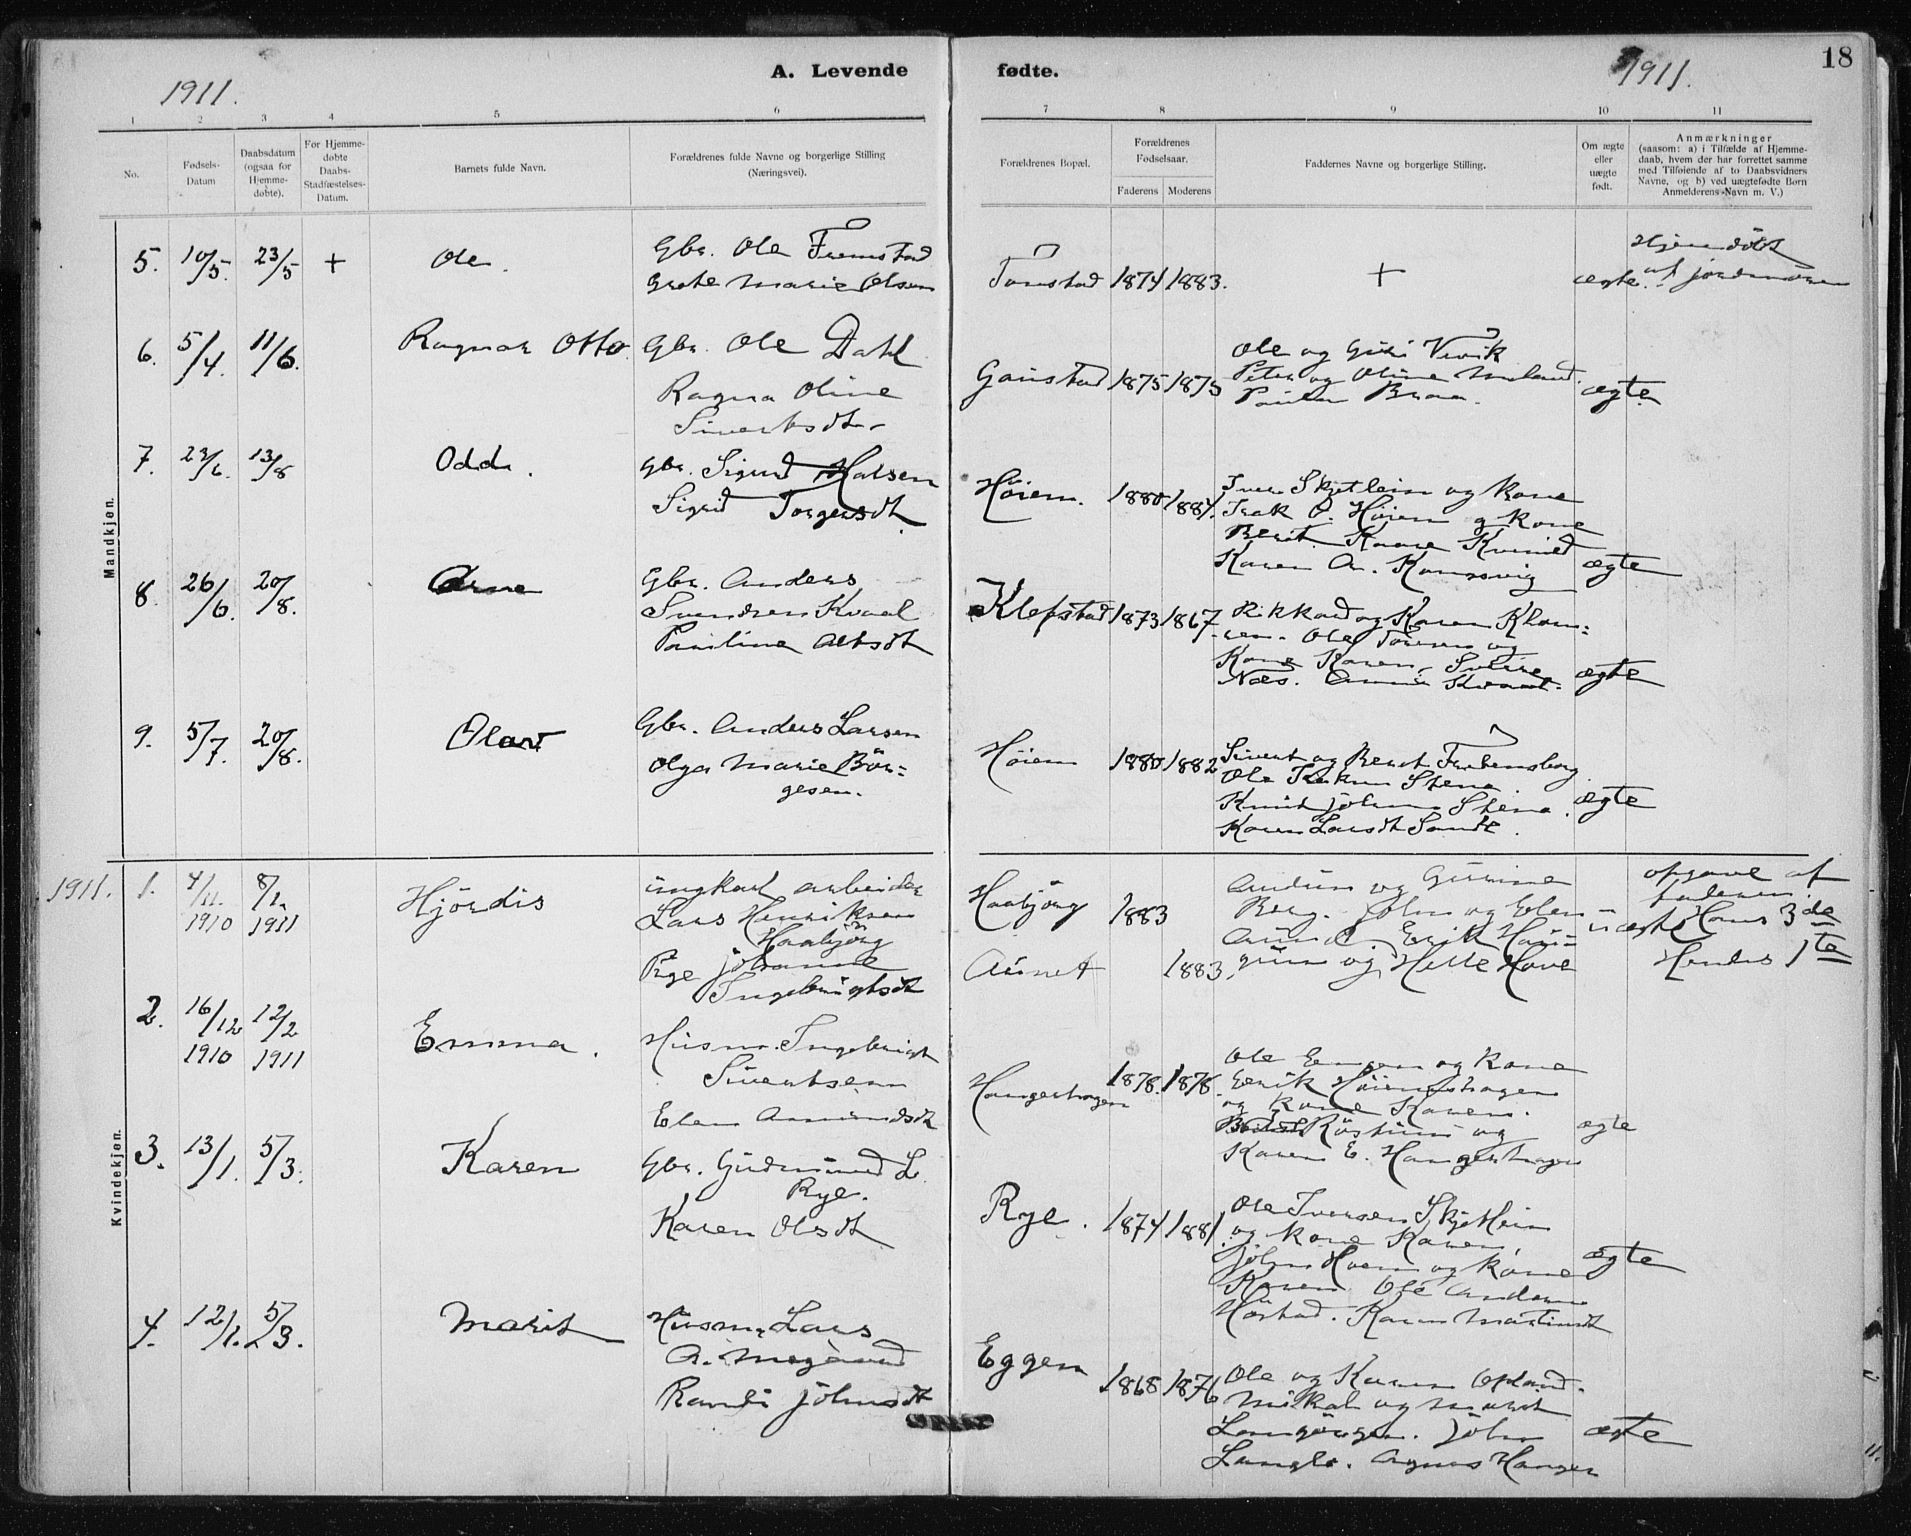 1911.
A. Levende
fødte.
1911.
18
1 2 3 4 5 6 7 8 9 10 11
No.
Fødsels-
Datum
Daabsdatum
(ogsaa for
Hjemme-
døbte).
For Hjemme-
døbte
Daabs-
Stadfæstelses-
Datum.
Barnets fulde Navn.
Forældrenes fulde Navne og borgerlige Stilling
(Næringsvei).
Forældrenes Bopæl.
Forældrenes
Fødselsaar.
Faderens Moderens
Faddernes Navne og borgerlige Stilling.
Om ægte
eller
uægte
født.
Anmærkninger
(saasom: a) i Tilfælde af Hjemme-
daab, hvem der har forrettet samme
med Tilføiende af to Daabsvidners
Navne, og b) ved uægtefødte Børn
Anmelderens Navn m. V.)
Mandkjøn.
5. 10/5. 23/5 + Ole.
Gbr. Ole
Grete Marie Olsen
1874 1883. +
ægte.
af jordmoren
6. 5/4. 11/6. Ragnar Otto.
Gbr. Ole Dahl
Ragna Oline
Sivertsdt.
Gaustad 1875 1875
Ole og Guri Vivik
Peter og Oline
ægte
7. 23/6. 13/8 Odd.
Gbr. Sigurd Halsen
Sigrid Torgersdt.
Høiem. 1880 1884.
Iver Skjetlein og Kone
Isak O. Høiem og Kone
Berit. Kaare
Karen A.
ægte
8. 26/6. 20/8. Arne
Gbr. Anders
Svendsen Kvaal
Pauline
Klefstad 1873 1867
Rikkard og Karen
Ole
Kone Karen. Sverre
Næs.
ægte
9. 5/7. 20/8. Olav
Gbr. Anders Larsen
Olga Marie Bör=
gesen.
Høiem 1880 1882
Sivert og Berit
Ole Stene
Knut Johnsen Stene.
Karen Larsdt Sande.
ægte
Kvindekjøn.
1911. 1. 4/11. 1910 8/1. 1911 Hjördis
ungkarl arbeider
Lars Henriksen
Haabjörg
Pige Johanne
Ingebrigtsdt
Haabjörg 1883
Aunet 1883
Audun og Gurine
Berg. John og Elen
Aune. Erik
og Hove
uægte
opgave af
faderen.
Hans 3de
Hendes 1te
2. 16/12 1910 12/2 1911 Emma.
Husm. Ingebrigt
Sivertsen
Elen Amundsdt
1878. 1878
Ole og Kone
Erik
og Kone Karen.
og
Karen E.
ægte
3. 13/1. 5/3. Karen
Gbr. Gudmund L.
Rye.
Karen Olsdt
Rye. 1874 1881.
Ole Iversen Skjetlein
og Kone Karen,
John Hoem og Kone
Karen. Ole Andersen
Høstad. Karen Martinsdt
ægte
4. 12/1. 5/3. Marit
Husm. Lars
A.
Randi Johnsdt
Eggen 1868 1876
Ole og Karen Opland.
Mikal og Marit
Langörgen. John
Langlo. Agnes Hanger
ægte